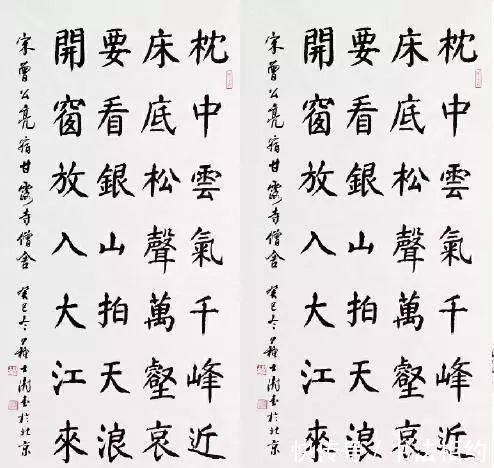 枕中雲氣千峰近
床底松聲萬壑哀
要看銀山拍天浪
開窗放入大江來
宋曾公亮宿甘露寺僧舍 癸巳冬 蘇士澍書於北京
枕中雲氣千峰近
床底松聲萬壑哀
要看銀山拍天浪
開窗放入大江來
宋曾公亮宿甘露寺僧舍 癸巳冬 蘇士澍書於北京
书法相约